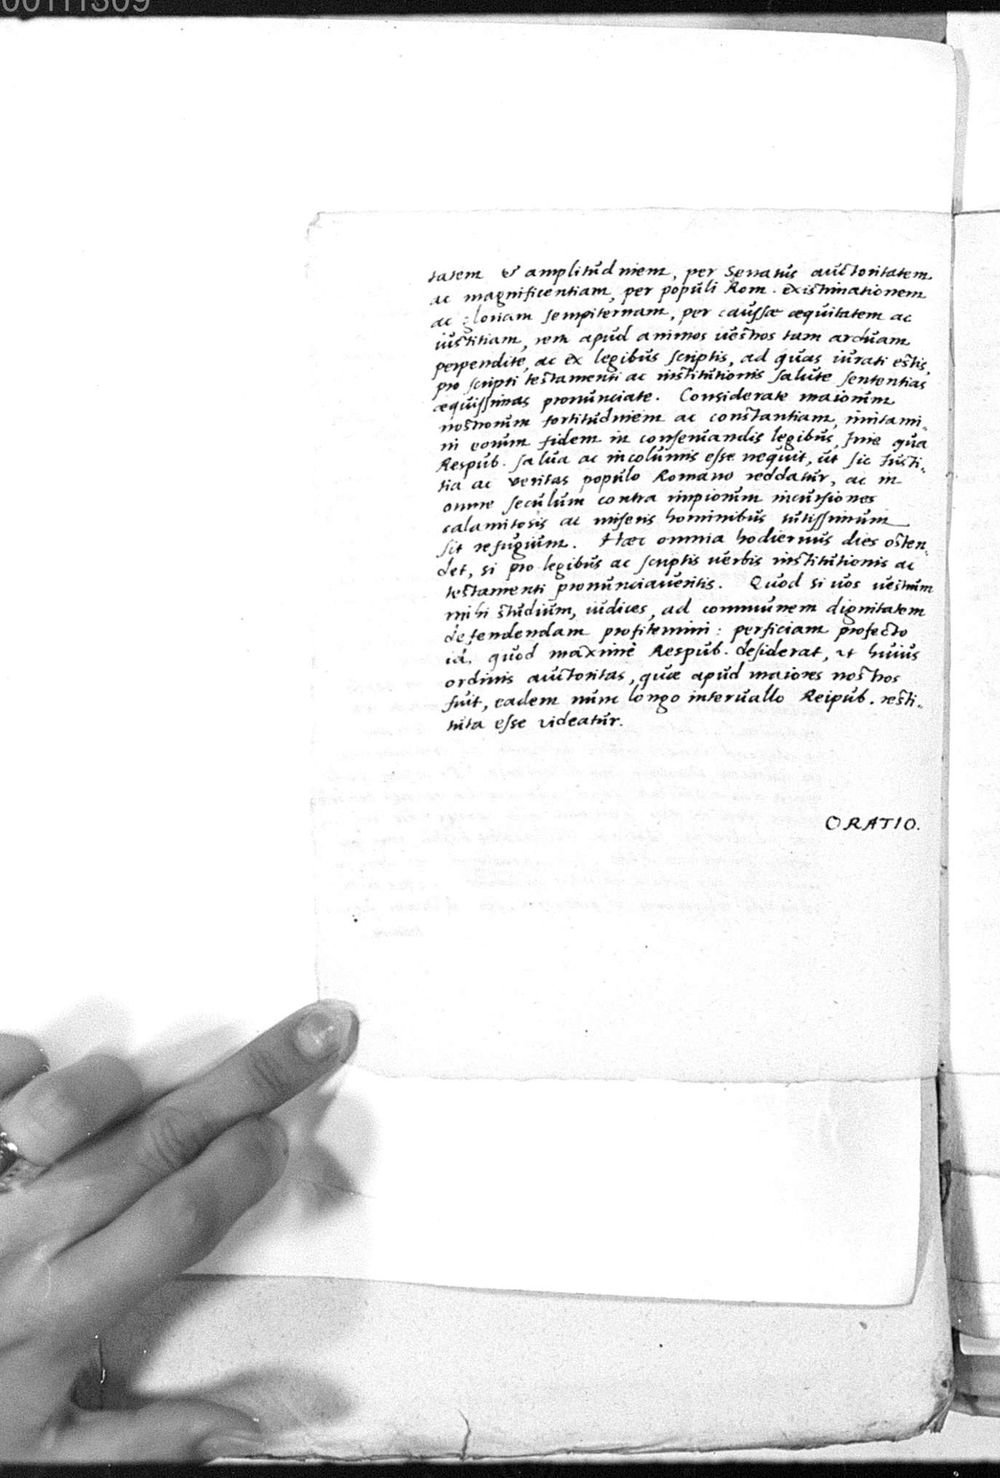 00111309
tatem & amplitudinem, per Senatus auctoritatem
ac magnificentiam, per populi Rom. existimationem
ac gloriam sempiternam, per caussæ æquitatem ac
iustitiam, rem apud animos uestros tam arduam
perpendite, ac ex legibus scriptis, ad quas iurati estis,
pro scripti testamenti ac institutionis salute sententias
æquissimas pronunciate. Considerate maiorum
nostrorum fortitudinem ac constantiam, imitami-
ni eorum fidem in conseruandis legibus, sine qua
Respub. salua ac incolumis esse nequit, ut sic iusti-
tia ac veritas populo Romano reddatur, ac in
omne seculum contra impiorum incursiones
calamitosis ac miseris hominibus tutissimum
sit refugium. Hæc omnia hodiernus dies osten-
det, si pro legibus ac scriptis uerbis institutionis ac
testamenti pronunciaueritis. Quod si uos uestrum
mihi studium, iudices, ad communem dignitatem
defendendam profitemini: perficiam profecto
id, quod maxime Respub. desiderat, ut huius
ordinis auctoritas, quæ apud maiores nostros
fuit, eadem nunc longo interuallo Reipub. resti-
tuta esse videatur.
ORATIO.